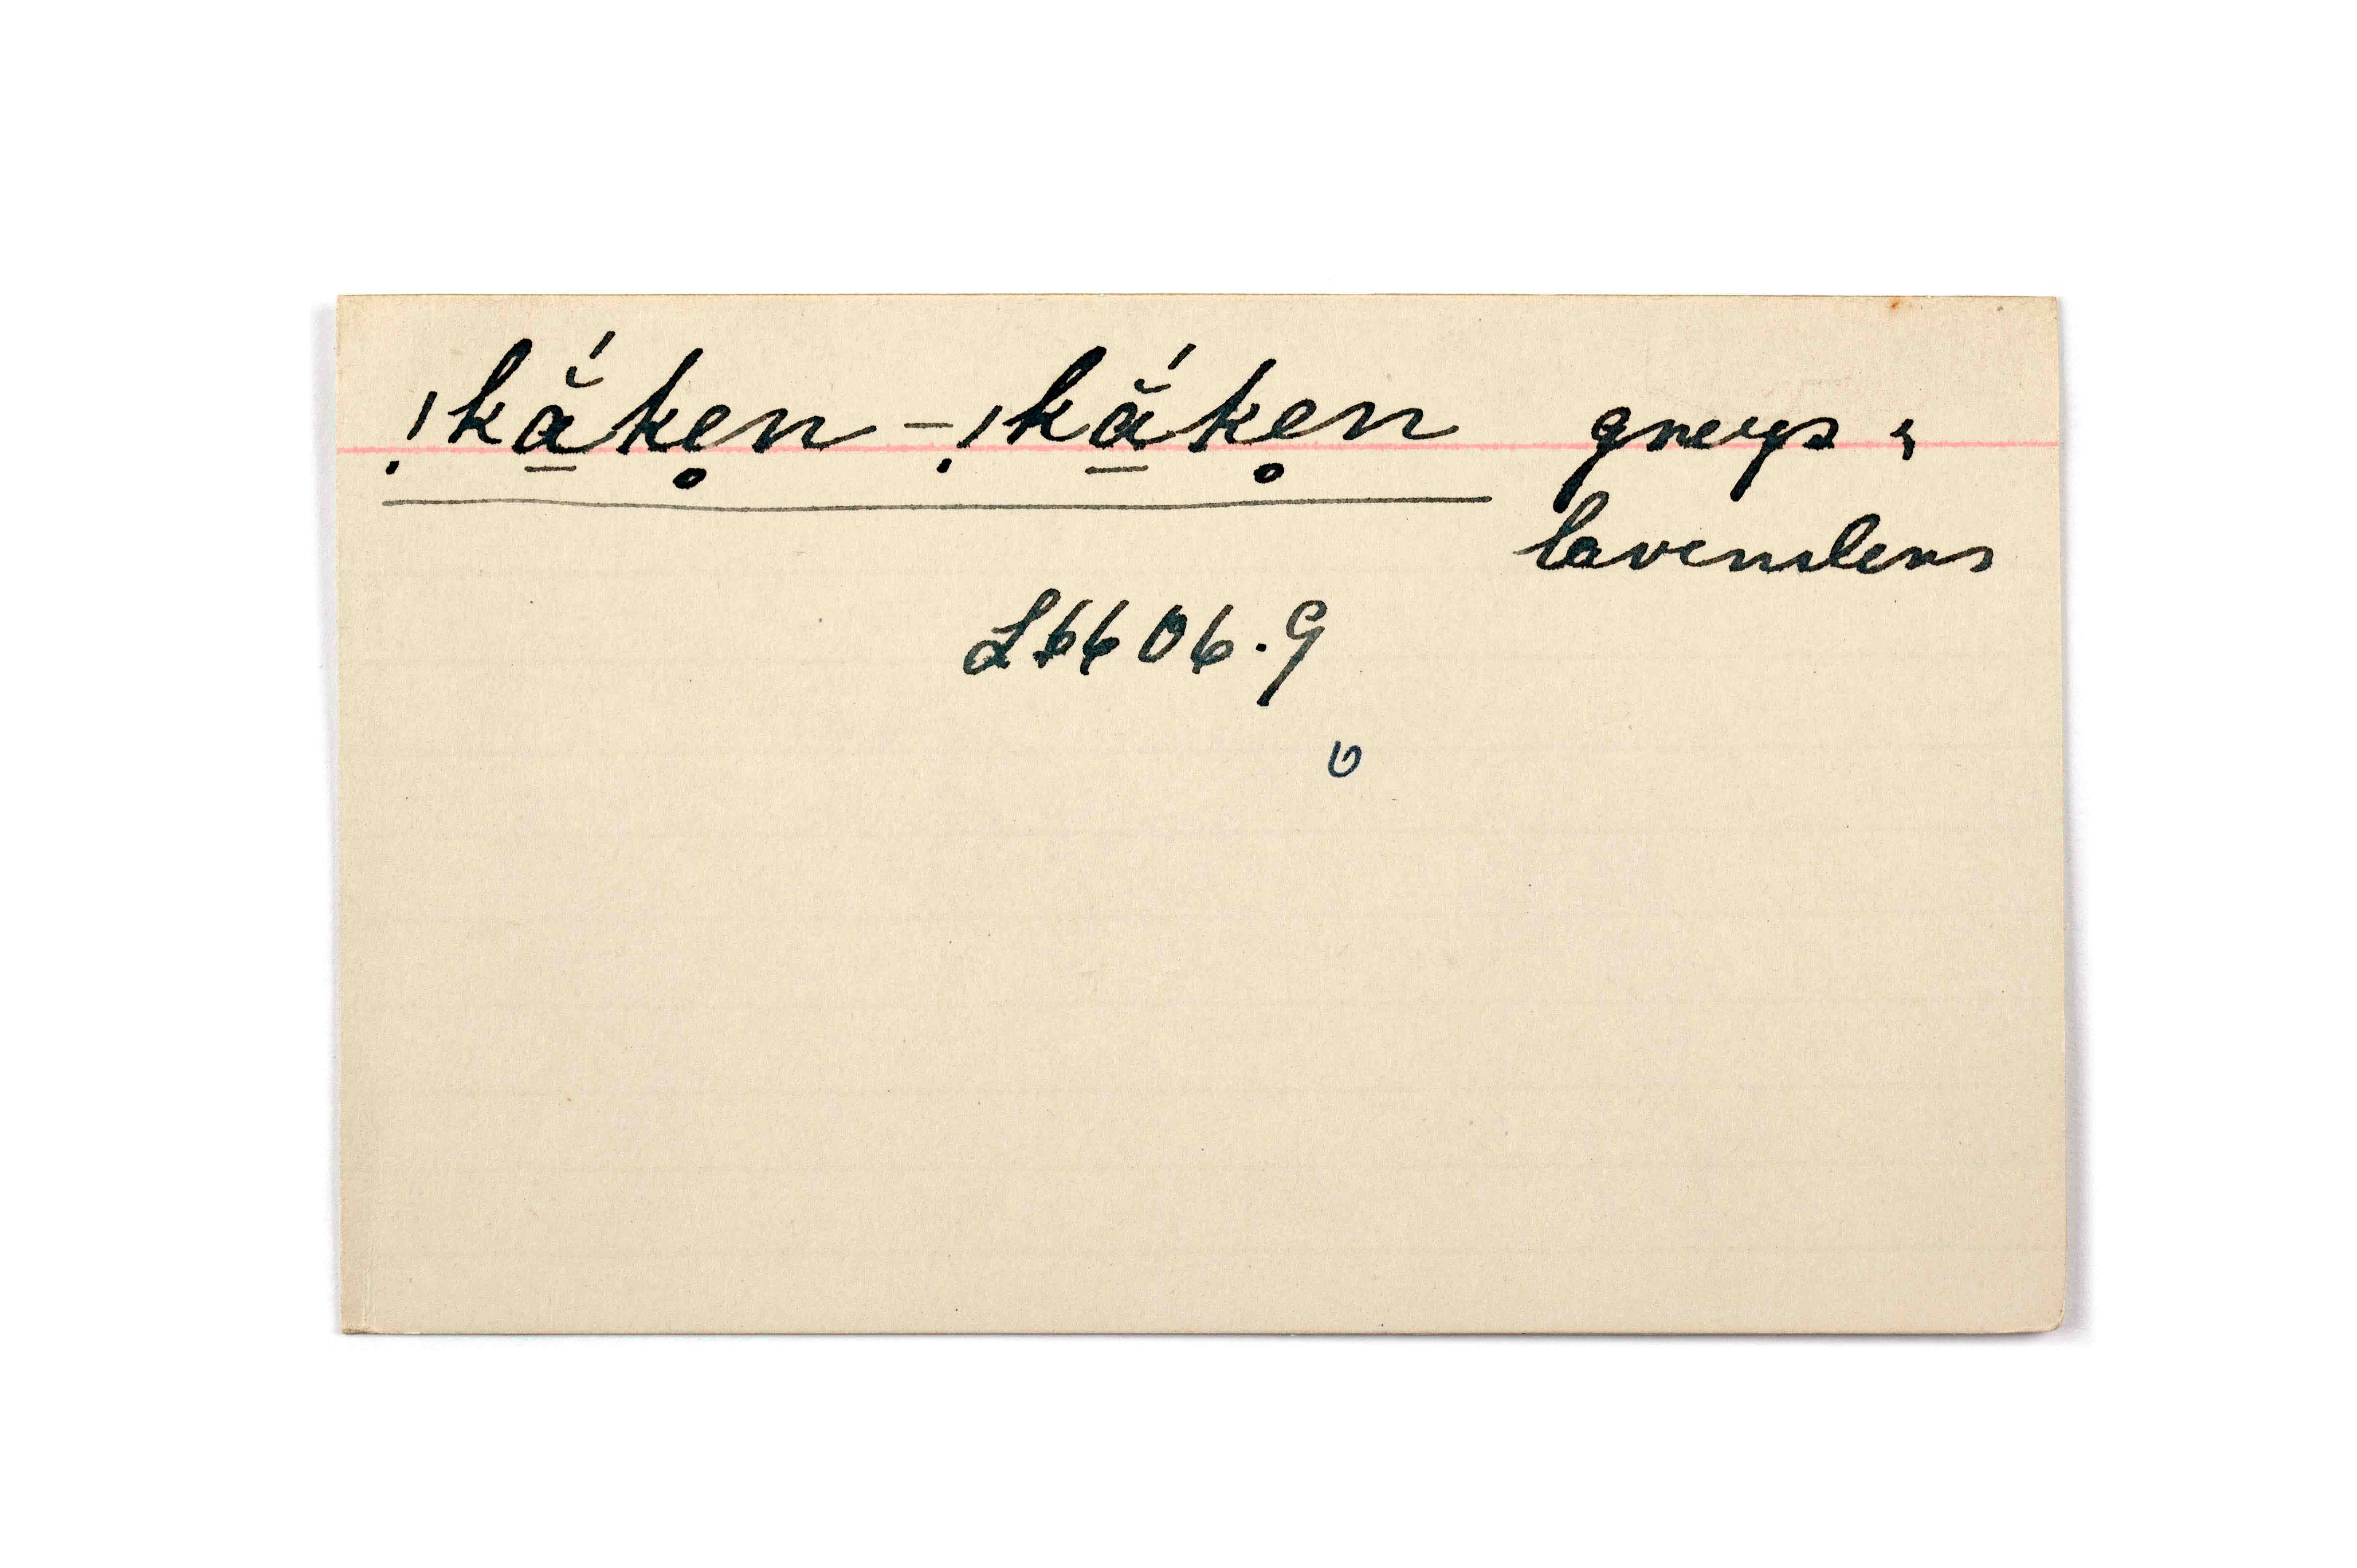 !kã̱́ke̥n-!kã̱́ke̥n greys &
lavenders
L6606.9